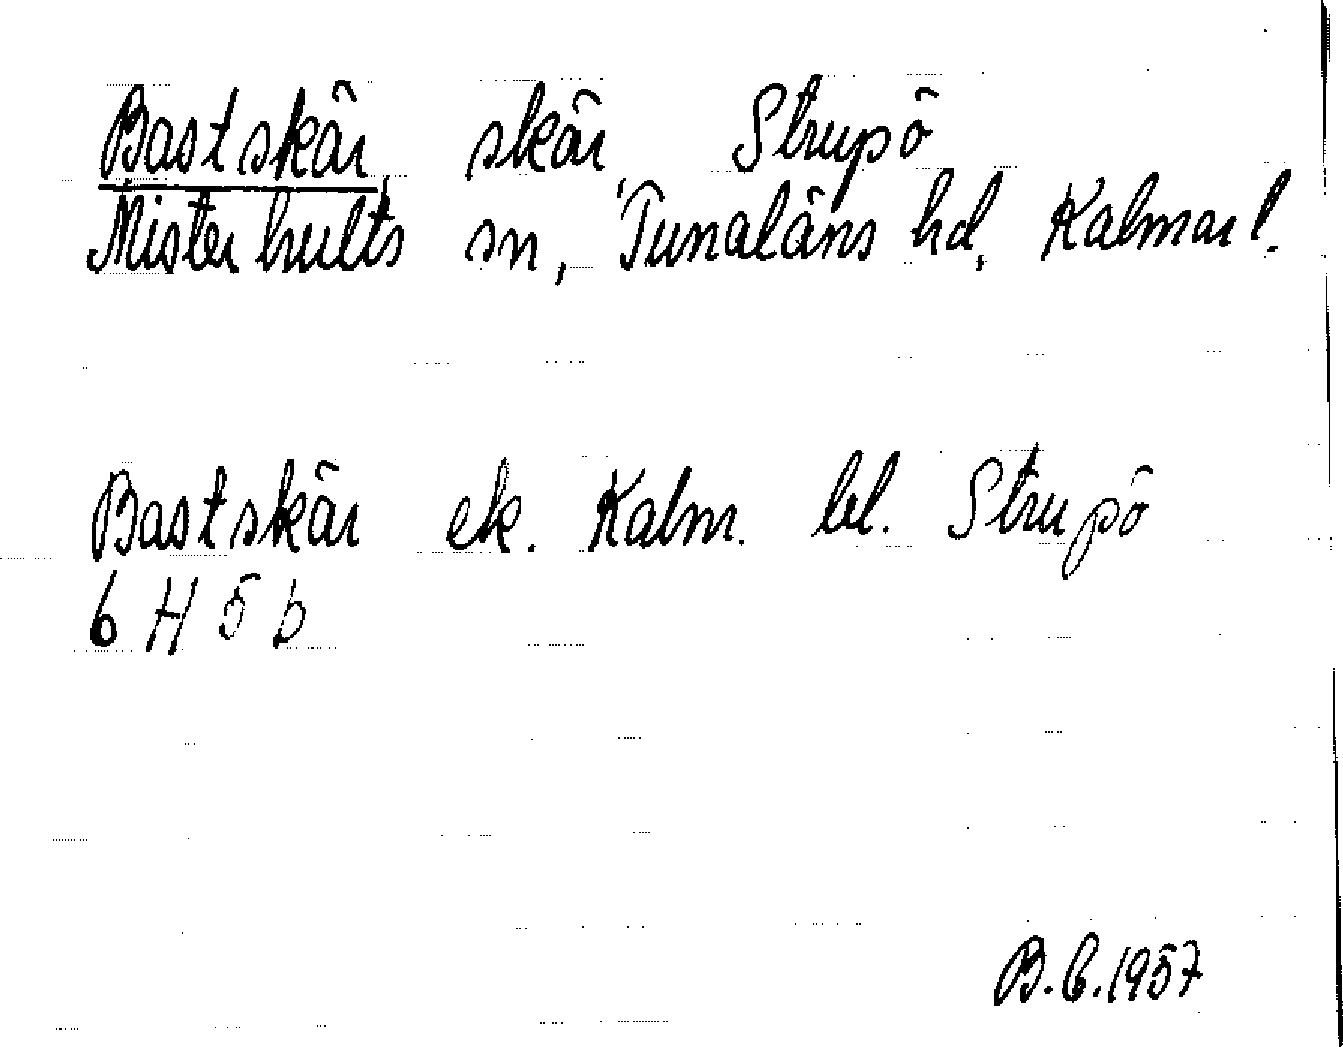 Bastskär, skär, Strupö
Misterhults sn, Tunaläns hd, Kalmar l.
Bastskär ek. Kalm. bl. Strupö
6 H 5 b
B.C. 1957